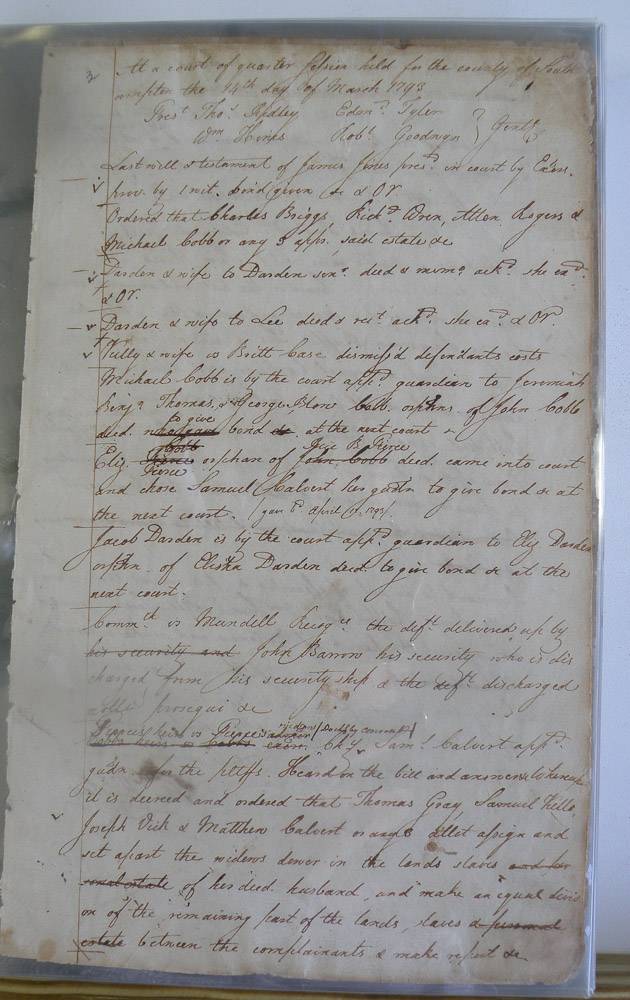 2
At a court of quarter Session held for the county of South
ampton the 14th day of March 1793
Prest. Thos. Ridley Edmd. Tyler
Wm. Hines Robt. Goodwyn } Gentn.
Last will & testament of James Jones presd. in court by Exors.
prov. by 1 wit. bond given &c & OR
Ordered that Charles Briggs, Richd. Wren, Allen Rogers &
Michael Cobb or any 3 appr. said estate &c
Darden & wife to Darden senr. deed & ackd. she exd.
& OR.
Darden & wife to Lee deed & rect. ackd. she exd. & OR.
Tully & wife vs Britt Case dismiss'd defendants costs
Michael Cobb is by the court appd. guardian to Jeremiah
Benja. Thomas, & George Blow Cobb orphans of John Cobb
deced. to give bond &c at the next court
Cobb Jese B Pierce
Eliz. orphan of John Cobb deced. came into court
Pierce
and chose Samuel Calvert her guardn to give bond &c at
the next court. (gave bd. April Ct. 1793)
Jacob Darden is by the court appd. guardian to Eliz Darden
orphn. of Elisha Darden deced. to give bond &c at the
next court.
Commth vs Mundell Recogce. the deft. delivered up by
his security and John Barrow his security who is dis
charged from his security ship & the deft. discharged
nolle prosequi &c
heirs vs Pierce's (Doctt by consent)
Cobbs heirs vs Cobbs exor. Chy Saml. Calvert appd.
gudn. for the pltffs. Heard on the bill and answer & Whereupon
it is decreed and ordered that Thomas Gray Samuel Kello
Joseph Vick & Matthew Calvert or any 3 allot assign and
set apart the widows dower in the lands slaves and per
sonal estate of her deced. husband, and make an equal divisi
on of the remaining part of the lands, slaves & personal
estate between the complainants & make report &c